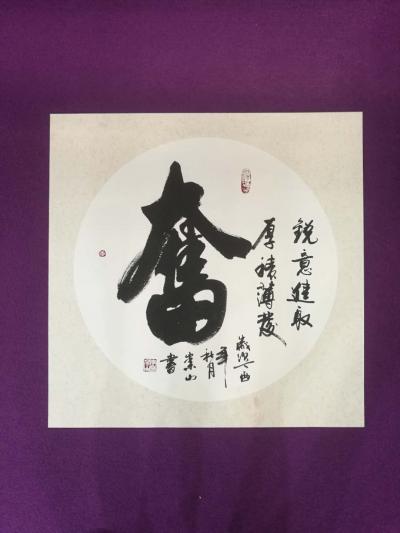 銳意進取
厚積薄發
奮
歲次丁酉
年
秋月
山
書